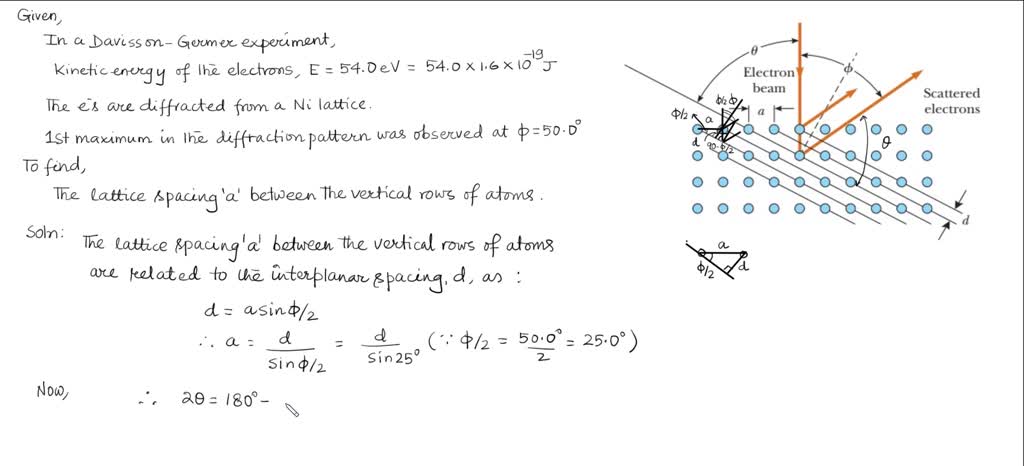 Given,
In a Davisson-Germer experiment,
Kinetic energy of the electrons, E = 54.0 eV = 54.0 × 1.6 × 10^-19 J
The e's are diffracted from a Ni lattice.
1st maximum in the diffraction pattern was observed at ϕ = 50.0°
To find,
The lattice spacing 'a' between the vertical rows of atoms.
Soln: The lattice spacing 'a' between the vertical rows of atoms
are related to the interplanar spacing, d, as :
d = a sin ϕ/2
∴ a = d / sin ϕ/2 = d / sin 25° (∵ ϕ/2 = 50.0° / 2 = 25.0°)
Now, ∴ 2θ = 180° -
θ
ϕ
Electron
beam
Scattered
electrons
ϕ/2
a
a
d
90-ϕ/2
θ
d
a
ϕ/2
d